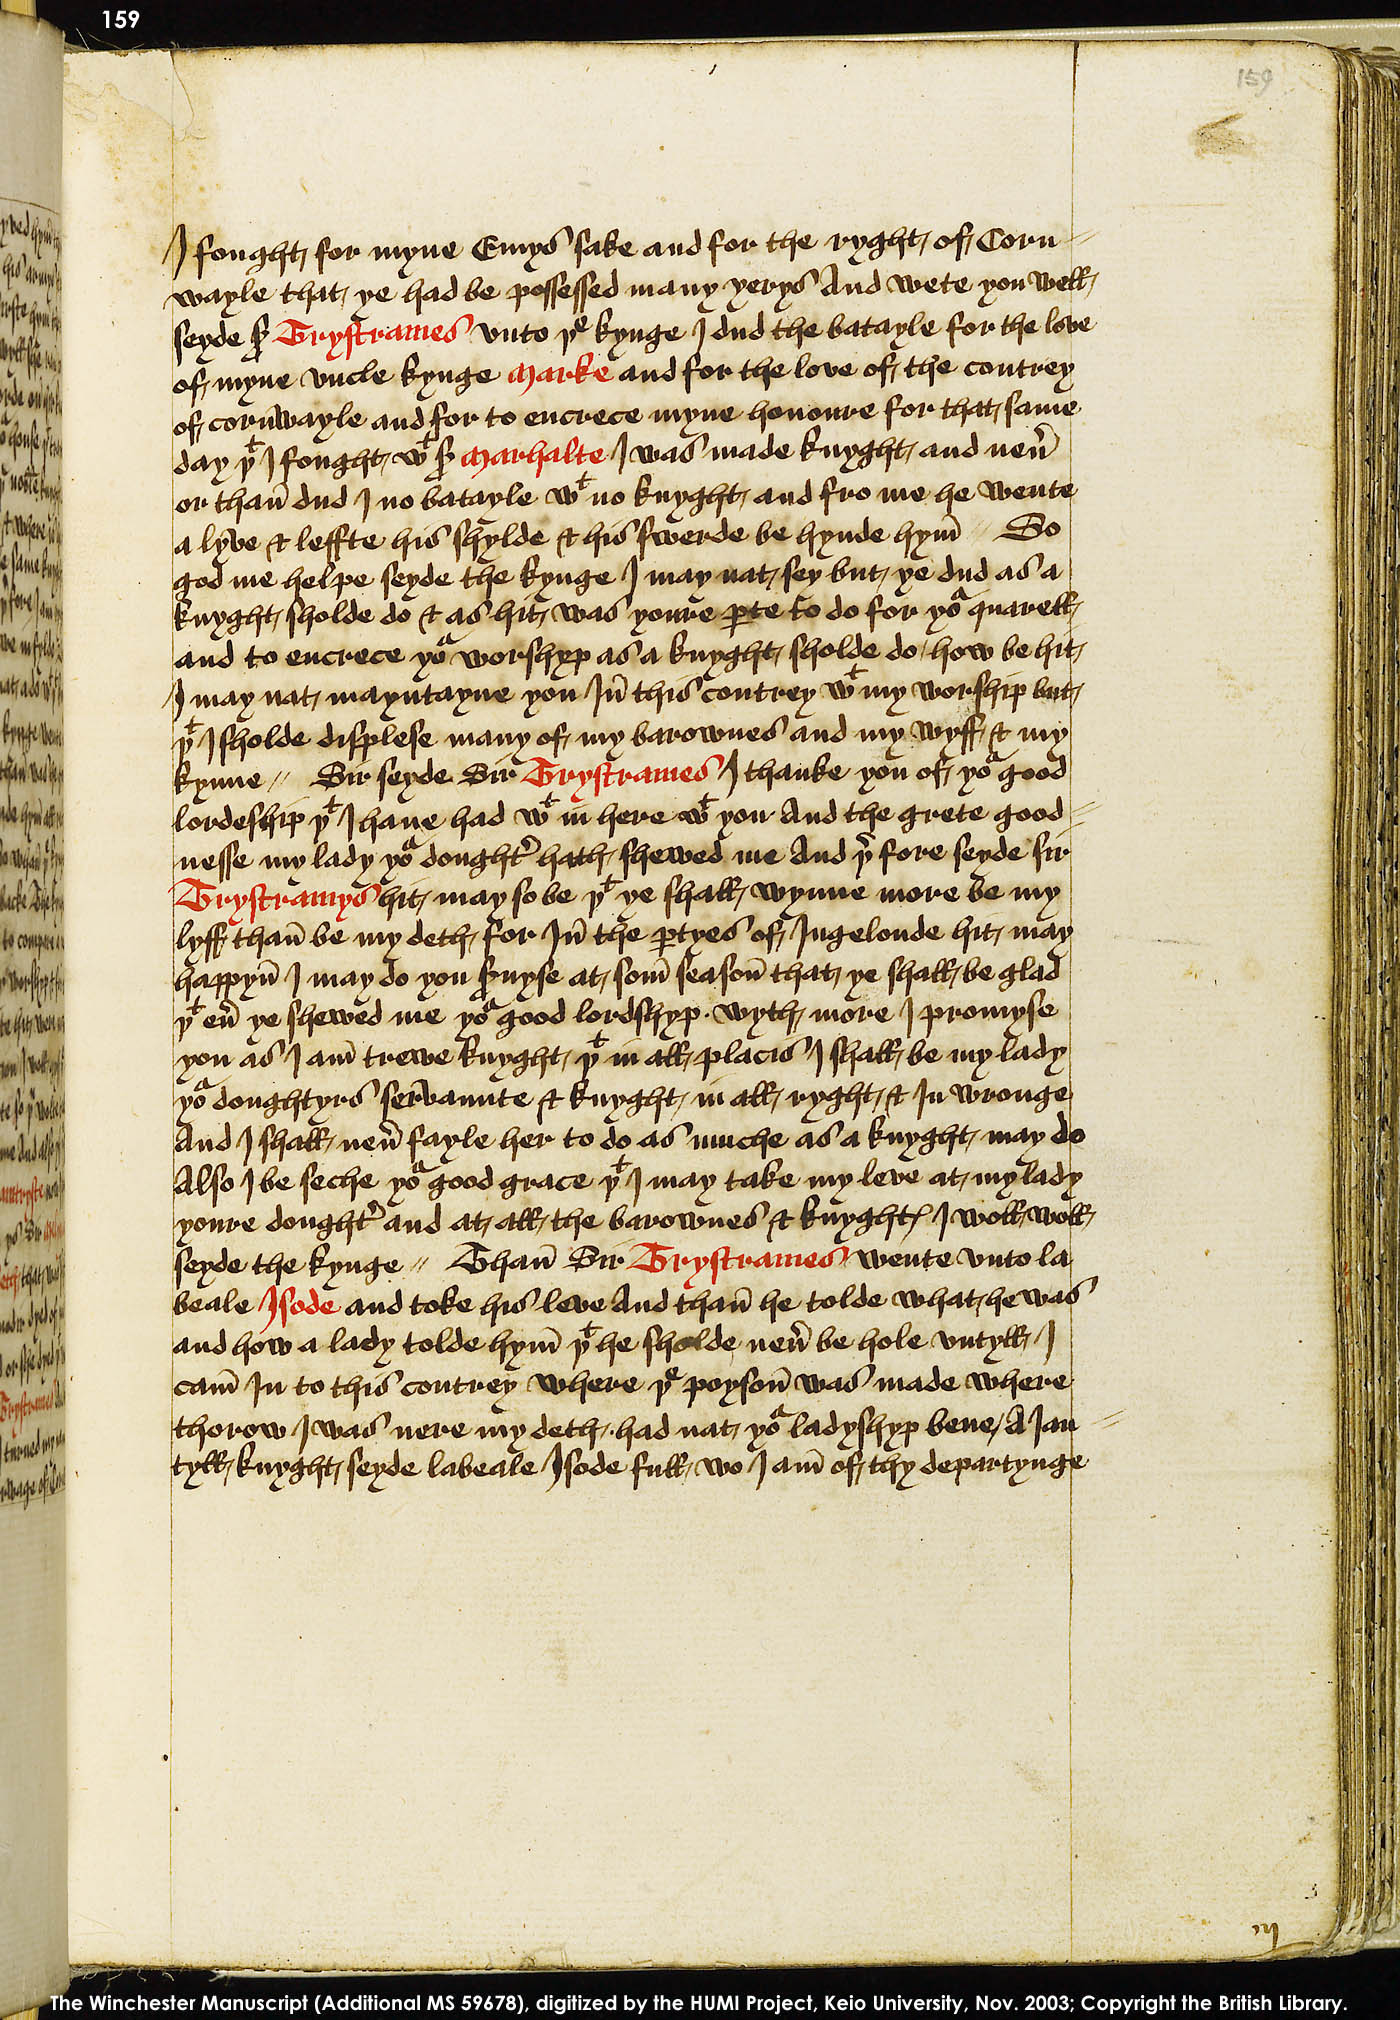 159
159
I fought for myne Emys sake and for the ryght of Corn
wayle that ye had be possessed many yerys And wete you well
seyde sr Trystrames vnto þe kynge I dud the batayle for the love
of myne vncle kynge Marke and for the love of the contrey
of cornwayle and for to encrece myne honoure for that same
day þt I fought wt sr Marhalte I was made knyght and neuer
or than dud I no batayle wt no knyght and fro me he wente
a lyve & leffte his shylde & his swerde be hynde hym // So
god me helpe seyde the kynge I may nat sey but ye dud as a
knyght sholde do & as hit was youre parte to do for yor quarell
and to encrece yor worshyp as a knyght sholde do how be hit
I may nat mayntayne you In this contrey wt my worship but
þt I sholde displese many of my barownes and my wyff & my
kynne // Sir seyde Sir Trystrames I thanke you of yor good
lordeship þt I haue had wt in here wt you And the grete good
nesse my lady yor doughter hath shewed me And þer fore seyde sir
Trystramys hit may so be þt ye shall wynne more be my
lyff than be my deth for In the partyes of Ingelonde hit may
happyn I may do you seruyse at som season that ye shall be glad
þt euer ye shewed me yor good lordshyp. wyth more I promyse
you as I am trewe knyght þt in all placis I shall be my lady
yor doughtyrs servaunte & knyght in all ryght & In wronge
And I shall neuer fayle her to do as muche as a knyght may do
Also I be seche yor good grace þt I may take my leve at my lady
youre doughter and at all the barownes & knyghtes I woll well
seyde the kynge // Than Sir Trystrames wente vnto la
beale Isode and toke his leve And than he tolde what he was
and how a lady tolde hym þt he sholde neuer be hole vntyll I
cam In to this contrey where þe poyson was made where
thorow I was nere my deth. had nat yor ladyshyp bene / A Ian
tyll knyght seyde labeale Isode full wo I am of thy departynge
The Winchester Manuscript (Additional MS 59678), digitized by the HUMI Project, Keio University, Nov. 2003; Copyright the British Library.